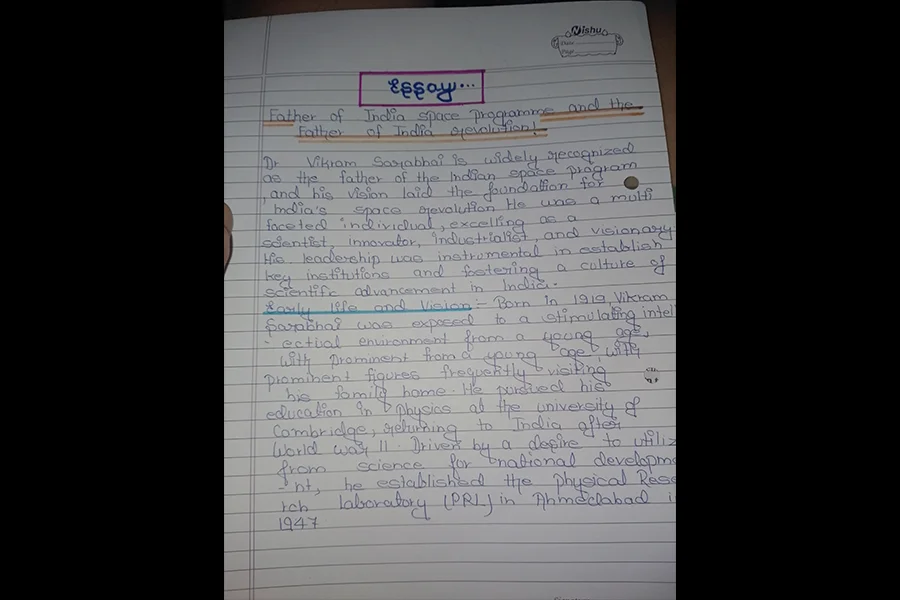 Nishu
Date
Page
Essay...
Father of India space programme and the
Father of India revolution!
Dr Vikram Sarabhai is widely recognized
as the father of the Indian space program
, and his vision laid the foundation for
India's space revolution He was a multi
faceted individual, excelling as a
scientist, innovator, industrialist, and visionary
His leadership was instrumental in establish
key institutions and fostering a culture of
scientific advancement in India.
Early life and Vision :- Born in 1919, Vikram
Sarabhai was exposed to a stimulating intell
- ectual environment from a young age,
with prominent from a young age, with
prominent figures frequently visiting
his family home. He pursued his
education in physics at the university of
Cambridge, returning to India after
World war II. Driven by a desire to utiliz
from science for national developme
- nt, he established the Physical Resea
rch laboratory (PRL) in Ahmedabad i
1947